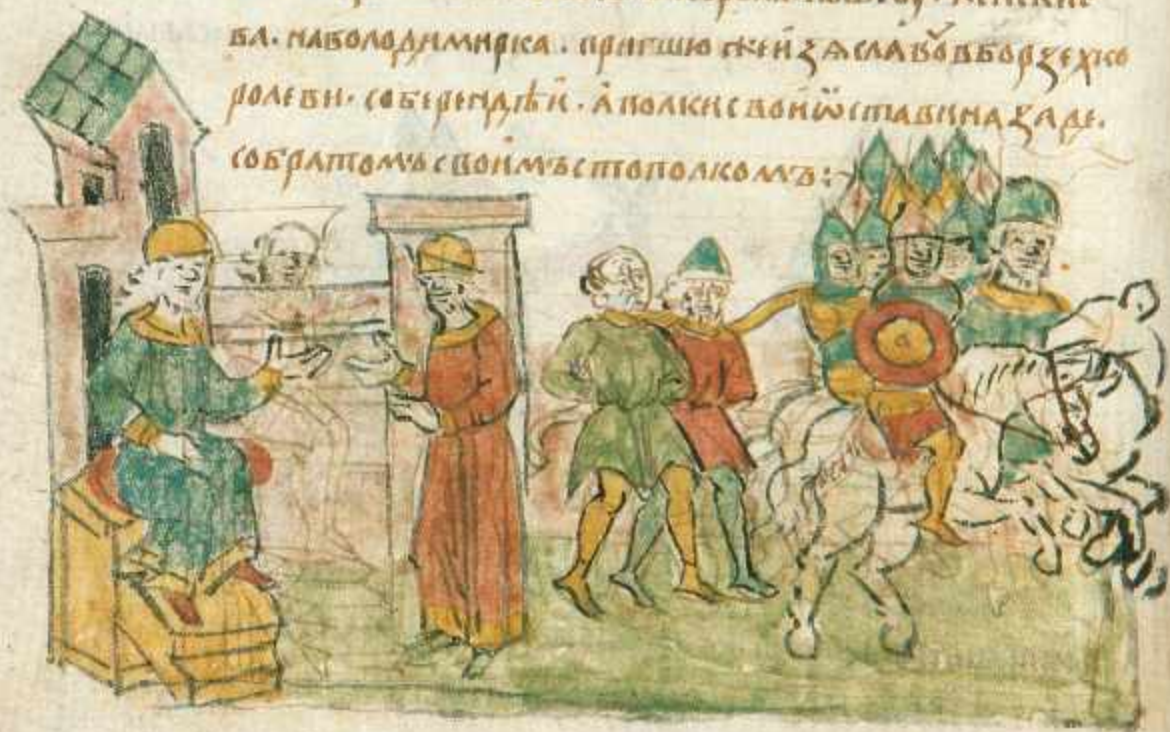 вл. наволодимирка. пришшю жеи зѧславꙋ вборзехко
ролеви. соберендѣи. а полкисвои ѿставиназаде.
собратомъсвоимъстополкомъ:~